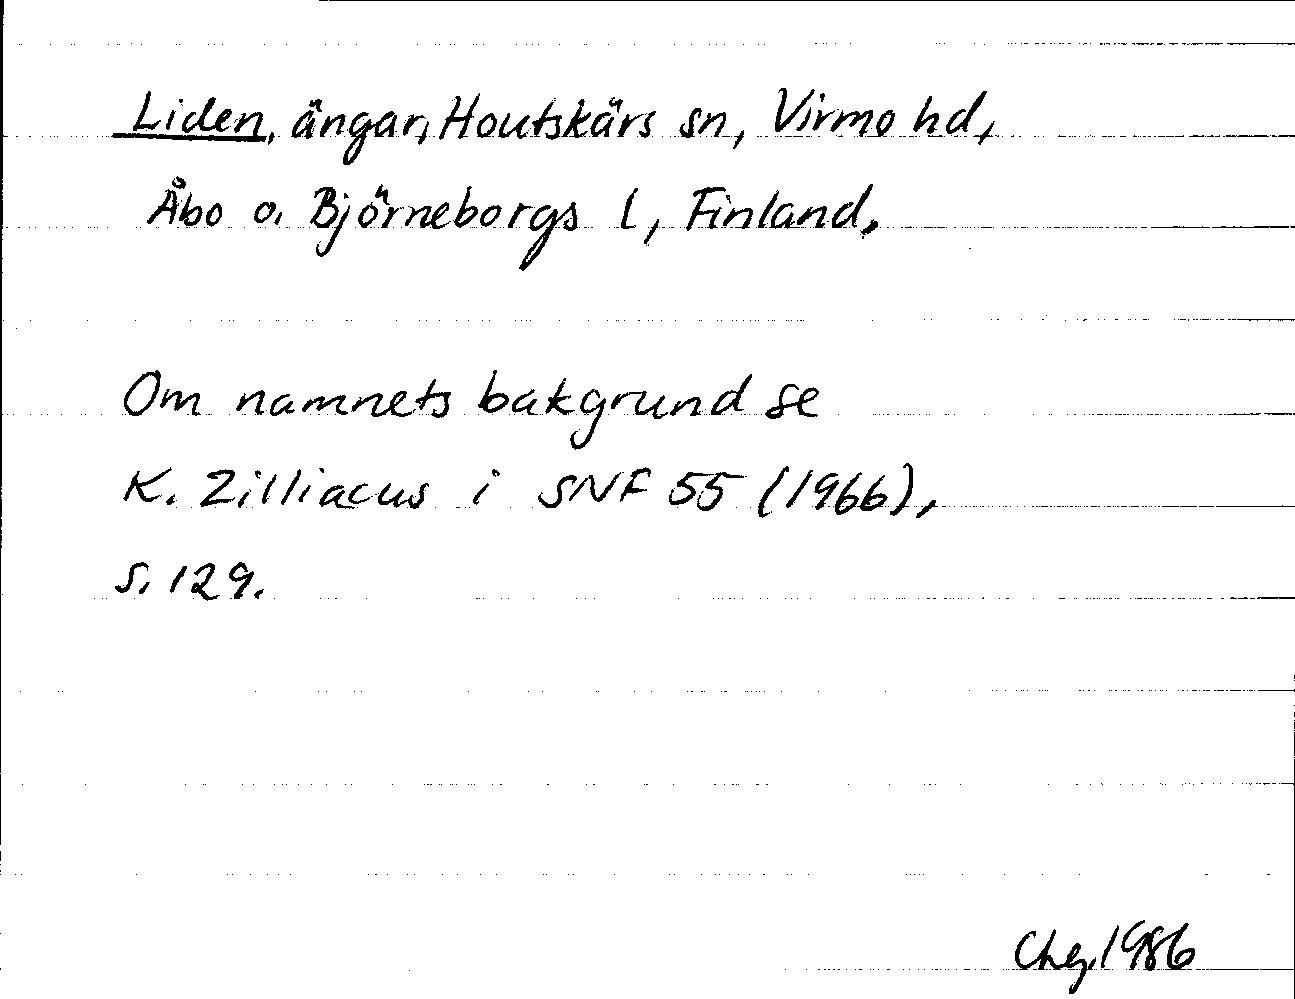 Liden, ängar, Houtskärs sn, Virmo hd,
Åbo o. Björneborgs l, Finland.
Om namnets bakgrund se
K. Zilliacus i SNF 55 (1966),
s. 129.
1986